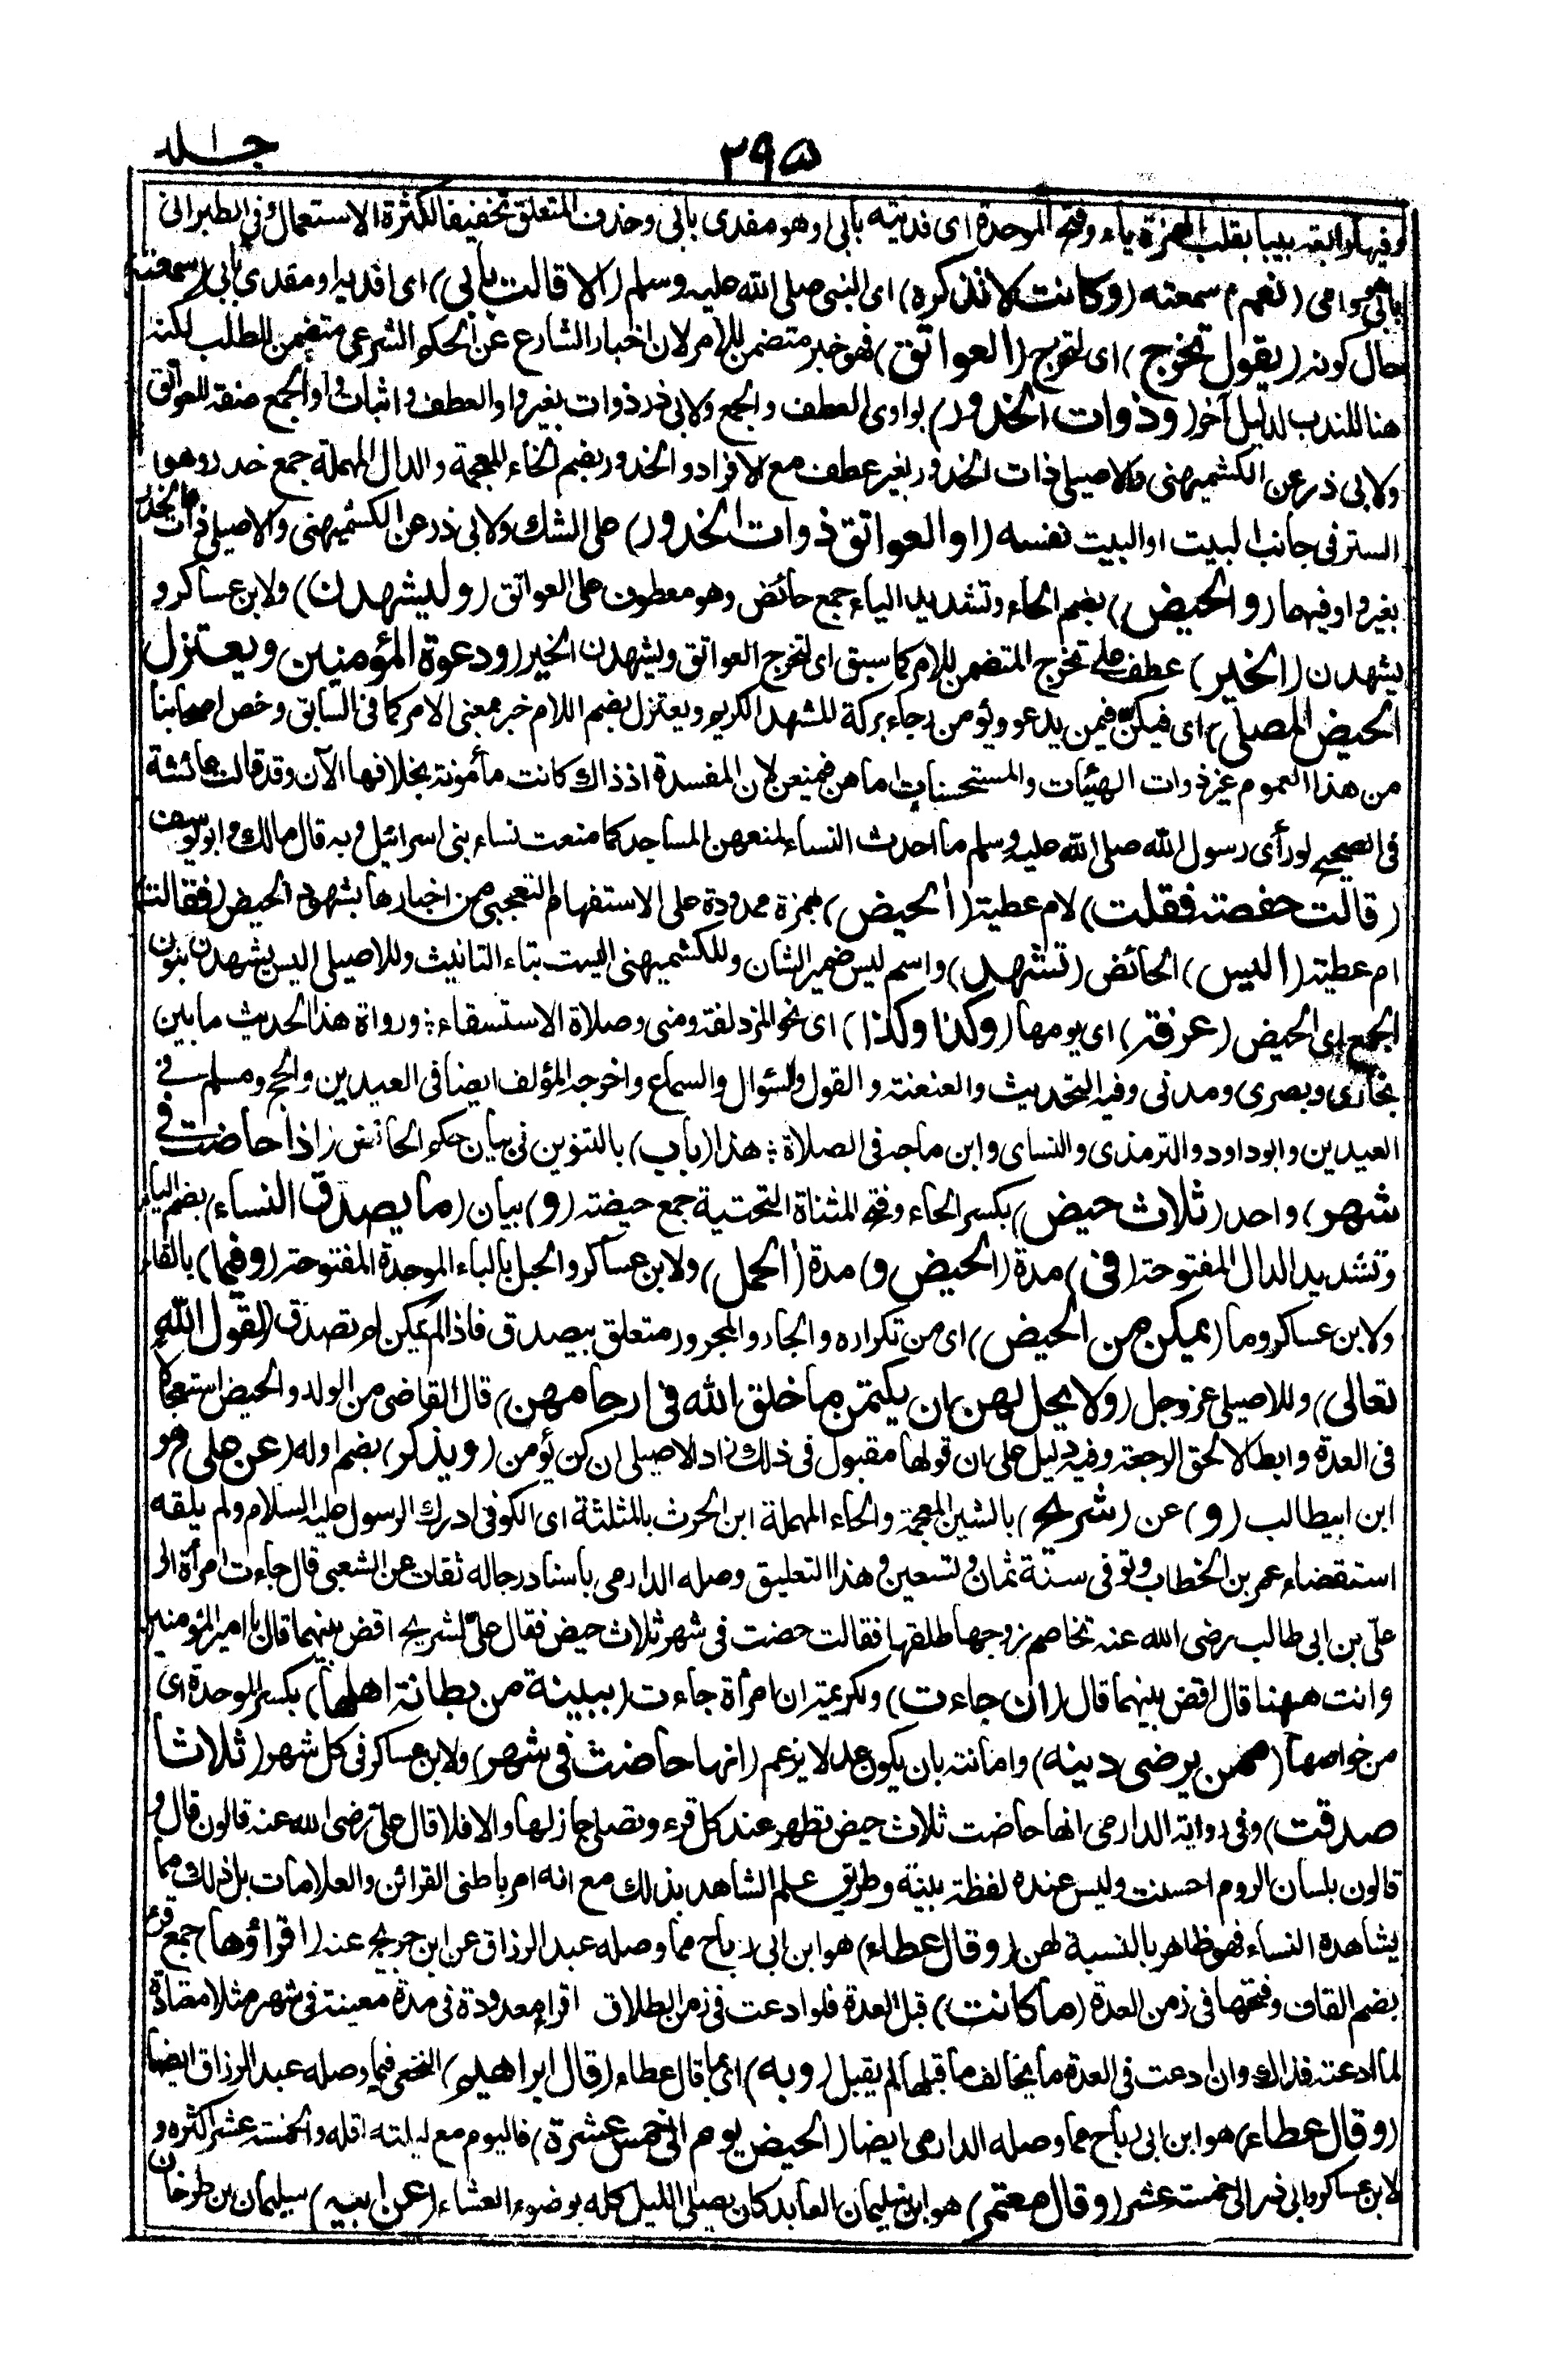 ٢٩٥
جلد
وفيها رابعة بيبا بقلب الهمزة ياء وفتح الموحدة اى فديته بأبى او هو مفدى بأبى وحذف المتعلق تخفيفا لكثرة الاستعمال وفى الطبرانى
بأبى هو وامى (نعم) سمعته (وكانت لا تذكره) اى النبى صلى الله عليه وسلم (الا قالت بأبى) اى افديه او مفدى بأبى (سمعته)
حال كونه (يقول تخرج) اى لتخرج (العواتق) فهو خبر متضمن للامر لان اخبار الشارع عن الحكم الشرعى متضمن للطلب لكنه
هنا للندب لدليل آخر (وذوات الخدور) بواوى العطف والجمع ولابى ذر ذوات بغير واو العطف واثبات واو الجمع صفة للعواتق
ولابى ذر عن الكشميهنى والاصيلى ذات الخدور بغير عطف مع الافراد والخدور بضم الخاء المعجمة والدال المهملة جمع خدر وهو
الستر فى جانب البيت او البيت نفسه (او العواتق ذوات الخدور) على الشك ولابى ذر عن الكشميهنى والاصيلى ذات الخدر
بغير واو فيهما (والحيض) بضم الحاء وتشديد الياء جمع حائض وهو معطوف على العواتق (وليشهدن) ولابن عساكر و
يشهدن (الخير) عطف على تخرج المتضمن للامر كما سبق اى لتخرج العواتق ويشهدن الخير (ودعوة المؤمنين ويعتزل
الحيض المصلى) اى فيكنّ فيمن يدعو ويؤمن رجاء بركة المشهد الكريم ويعتزل بضم اللام خبر بمعنى الامر كما فى السابق وخص اصحابنا
من هذا العموم غير ذوات الهيئات والمستحسنات اما هن فيمنعن لان المفسدة اذ ذاك كانت مأمونة بخلافها الآن وقد قالت عائشة
فى الصحيح لو رأى رسول الله صلى الله عليه وسلم ما احدث النساء لمنعهن المساجد كما منعت نساء بنى اسرائيل وبه قال مالك وابو يوسف
(قالت حفصة فقلت) لام عطية (آلحيض) بهمزة ممدودة على الاستفهام التعجبى من اخبارها بشهود الحيض (فقالت)
ام عطية (اليس) الحائض (تشهد) واسم ليس ضمير الشان وللكشميهنى اليست بتاء التانيث وللاصيلى اليس يشهدن بنون
الجمع اى الحيض (عرفة) اى يومها (وكذا وكذا) اى نحو المزدلفة ومنى وصلاة الاستسقاء ؛ ورواة هذا الحديث ما بين
بخارى وبصرى ومدنى وفيه التحديث والعنعنة والقول والسؤال والسماع واخرجه المؤلف ايضا فى العيدين والحج ومسلم فى
العيدين وابو داود والترمذى والنساى وابن ماجه فى الصلاة ؛ هذا (باب) بالتنوين فى بيان حكم الحائض (اذا حاضت فى
شهر) واحد (ثلاث حيض) بكسر الحاء وفتح المثناة التحتية جمع حيضة (و) بيان (ما يصدق النساء) بضم الياء
وتشديد الدال المفتوحة (فى) مدة (الحيض و) مدة (الحمل) ولابن عساكر والحبل بالباء الموحدة المفتوحة (وفيما) بالفاء
ولابن عساكر وما (يمكن من الحيض) اى من تكراره والجار والمجرور متعلق بيصدق فاذا لم يمكن لم تصدق (لقول الله
تعالى) وللاصيلى عز وجل (ولا يحل لهن ان يكتمن ما خلق الله فى ارحامهن) قال القاضى من الولد والحيض استعجالا
فى العدة وابطالا لحق الرجعة وفيه دليل على ان قولها مقبول فى ذلك زاد الاصيلى ان كن يؤمن (ويذكر) بضم اوله (عن على) هو
ابن ابيطالب (و) عن (شريح) بالشين المعجمة والحاء المهملة ابن الحرث بالمثلثة اى الكوفى ادرك الرسول عليه السلام ولم يلقه
استقضاه عمر بن الخطاب وتوفى سنة ثمان وتسعين وهذا التعليق وصله الدارمى باسناد رجاله ثقات عن الشعبى قال جاءت امرأة الى
علىّ بن ابى طالب رضى الله عنه تخاصم زوجها طلقها فقالت حضت فى شهر ثلاث حيض فقال علىّ لشريح اقض بينهما قال يا امير المؤمنين
وانت ههنا قال اقض بينهما قال (ان جاءت) ولكريمة ان امرأة جاءت (ببينة من بطانة اهلها) بكسر الموحدة اى
من خواصها (ممن يرضى دينه) وامانته بان يكون عدلا يزعم (انها حاضت فى شهر) ولابن عساكر فى كل شهر (ثلاثا
صدقت) وفى رواية الدارمى انها حاضت ثلاث حيض تطهر عند كل قرء وتصلى جاز لها والا فلا قال علىّ رضى الله عنه قالون قال و
قالون بلسان الروم احسنت وليس عنده لفظة بينة وطريق علم الشاهد بذلك مع انه امر باطنى القرائن والعلامات بل ذلك مما
يشاهده النساء فهو ظاهر بالنسبة لهن (وقال عطاء) هو ابن ابى رباح مما وصله عبد الرزاق عن ابن جريج عنه (اقراؤها) جمع قرء
بضم القاف وفتحها فى زمن العدة (ما كانت) قبل العدة فلو ادعت فى زمن الطلاق اقراء معدودة فى مدة معينة فى شهر مثلا معتادة
لما ادعته فذاك وان ادعت فى العدة ما يخالف ما قبلها لم يقبل (وبه) اى بما قال عطاء (قال ابراهيم) النخعى فيما وصله عبد الرزاق ايضا
(وقال عطاء) هو ابن ابى رباح مما وصله الدارمى ايضا (الحيض يوم الى خمس عشرة) فاليوم مع ليلته اقله والخمسة عشر اكثره و
لابن عساكر وابى ذر الى خمسة عشر (وقال معتمر) هو ابن سليمان العابد كان يصلى الليل كله بوضوء العشاء (عن ابيه) سليمان بن طرخان